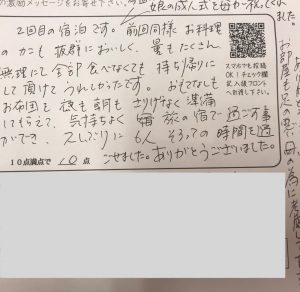 の感激メッセージをお寄せ下さい。
娘の成人式を母が祝ってくれ
ました。
2回目の宿泊です。前回同様、お料理
のカニも抜群においしく、量もたくさん
無理にて全部食べなくても持ち帰りに
して頂けうれしかったです。おもてなしも
お布団を夜も朝もさりげなく準備
してもらえて、気持ちよく 旅の宿で過ごす事
ができ、久しぶりに6人そろっての時間を過
ごせました。ありがとうございました。
スマホでも投稿
OK!チェック欄
記入後フロント
へお渡し下さい。
10点満点で 10 点
お部屋も足の悪い母の為に